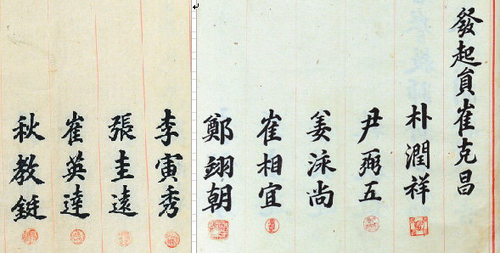 發起員崔克昌
朴潤祥
尹弼五
姜泳尚
崔相宜
鄭翊朝
李寅秀
張圭遠
崔英達
秋教鋌